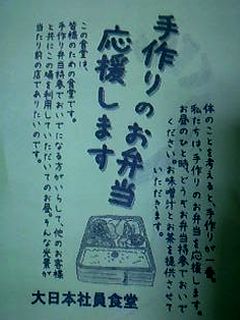 手作りのお弁当
応援します
体のことを考えると、手作りが一番。
私たちは、手作りのお弁当を応援します。
お昼のひと時、どうぞお弁当持参でおいで
ください。お味噌汁とお茶を提供させて
いただきます。
この食堂は、
皆様のための食堂です。
手作り弁当持参でおいでになる方がいらして、他のお客様
と共にこの場を利用していただいてのお昼。そんな光景が
当たり前の店でありたいのです。
大日本社員食堂